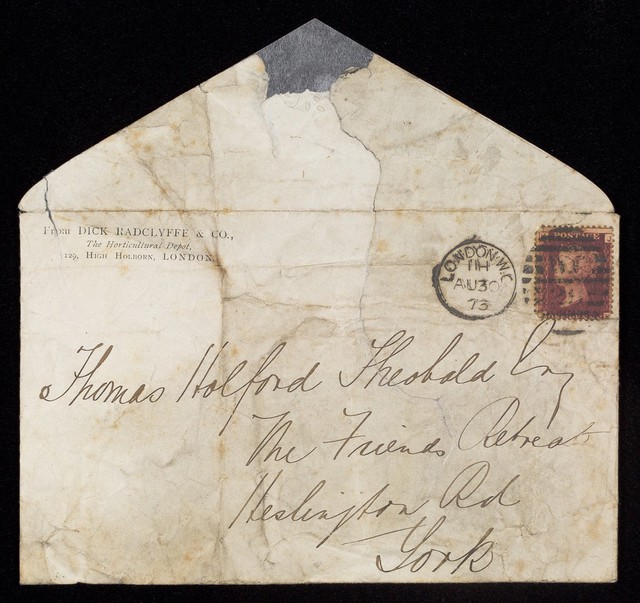 From DICK RADCLYFFE & CO.,
The Horticultural Depot,
129, HIGH HOLBORN, LONDON.
LONDON·W.C
AU30
73
POSTAGE
Thomas Holford Theobald Esq
The Friends Retreat
Heslington Rd
York